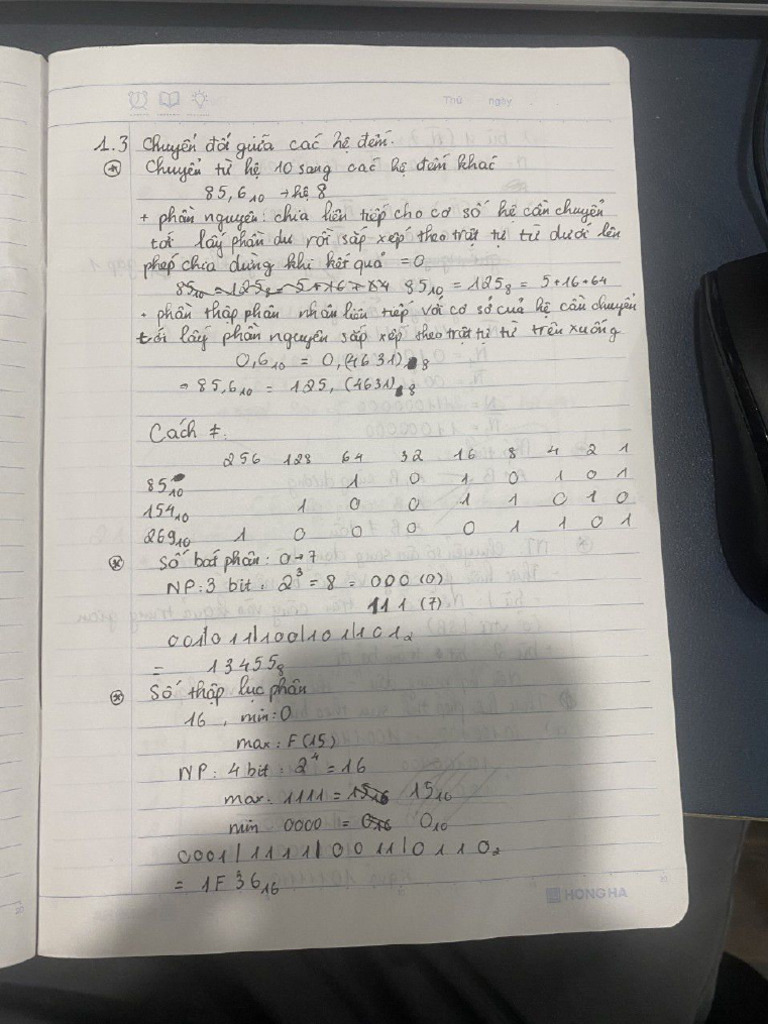 Thứ ngày
1.3 Chuyển đổi giữa các hệ đếm.
* Chuyển từ hệ 10 sang các hệ đếm khác
85,6₁₀ → hệ 8
+ phần nguyên: chia liên tiếp cho cơ số hệ cần chuyển
tới lấy phần dư rồi sắp xếp theo trật tự từ dưới lên
phép chia dừng khi kết quả = 0
85₁₀ = 125₈ = 5+16+64 85₁₀ = 125₈ = 5+16+64
+ phần thập phân nhân liên tiếp với cơ số của hệ cần chuyển
tới lấy phần nguyên sắp xếp theo trật tự từ trên xuống
0,6₁₀ = 0,(4631)₈
= 85,6₁₀ = 125,(4631)₈
Cách ≠:
256 128 64 32 16 8 4 2 1
85₁₀ 1 0 1 0 1 0 1
154₁₀ 1 0 0 1 1 0 1 0
269₁₀ 1 0 0 0 0 1 1 0 1
* Số bát phân: 0→7
NP: 3 bit: 2³ = 8 = 000 (0)
111 (7)
001|011|100|101|101₂
= 13455₈
* Số thập lục phân
16, min: 0
max: F (15)
NP: 4 bit: 2⁴ = 16
max: 1111 = 15₁₆ 15₁₀
min 0000 = 0₁₆ 0₁₀
0001|1111|0011|0110₂
= 1F36₁₆
HONG HA